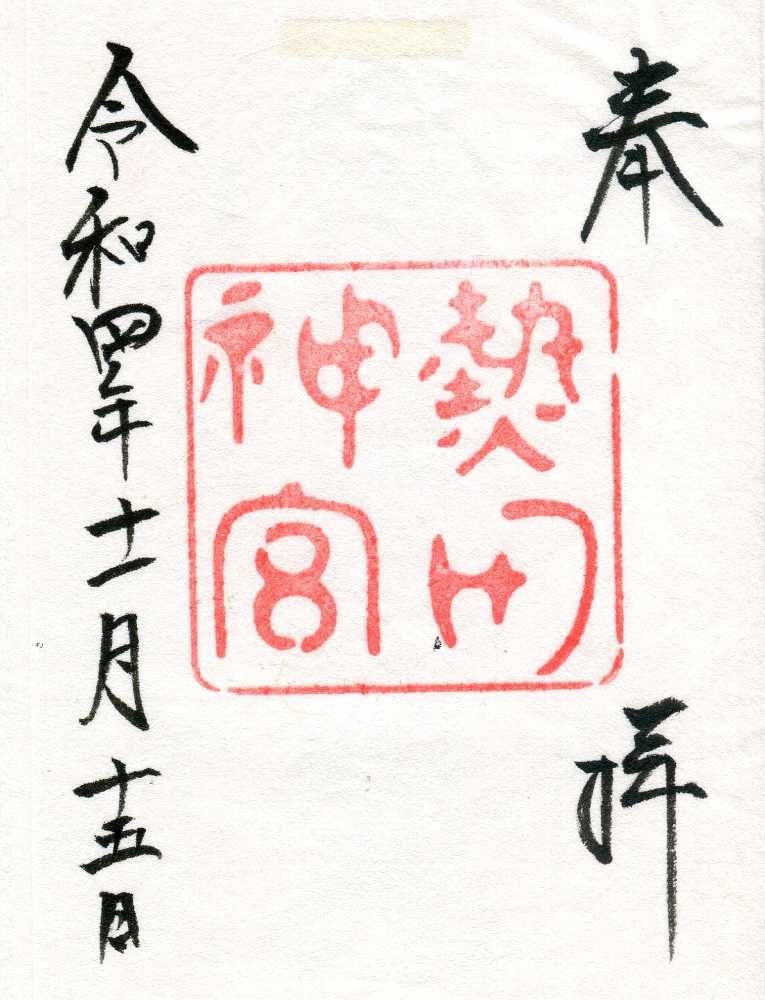 奉拝
熱田
神宮
令和四年十一月十五日